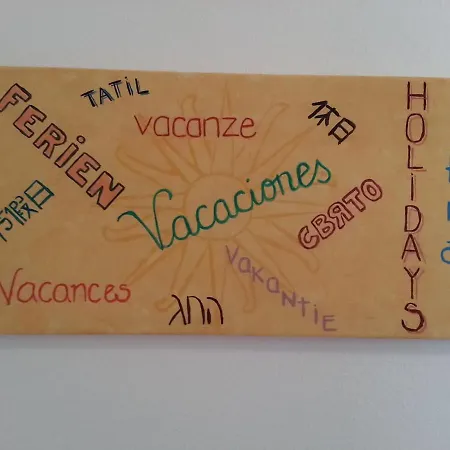 FERIEN
TATIL
vacanze
休日
HOLIDAYS
假日
Vacaciones
СВЯТО
VAKANTIE
Vacances
החג